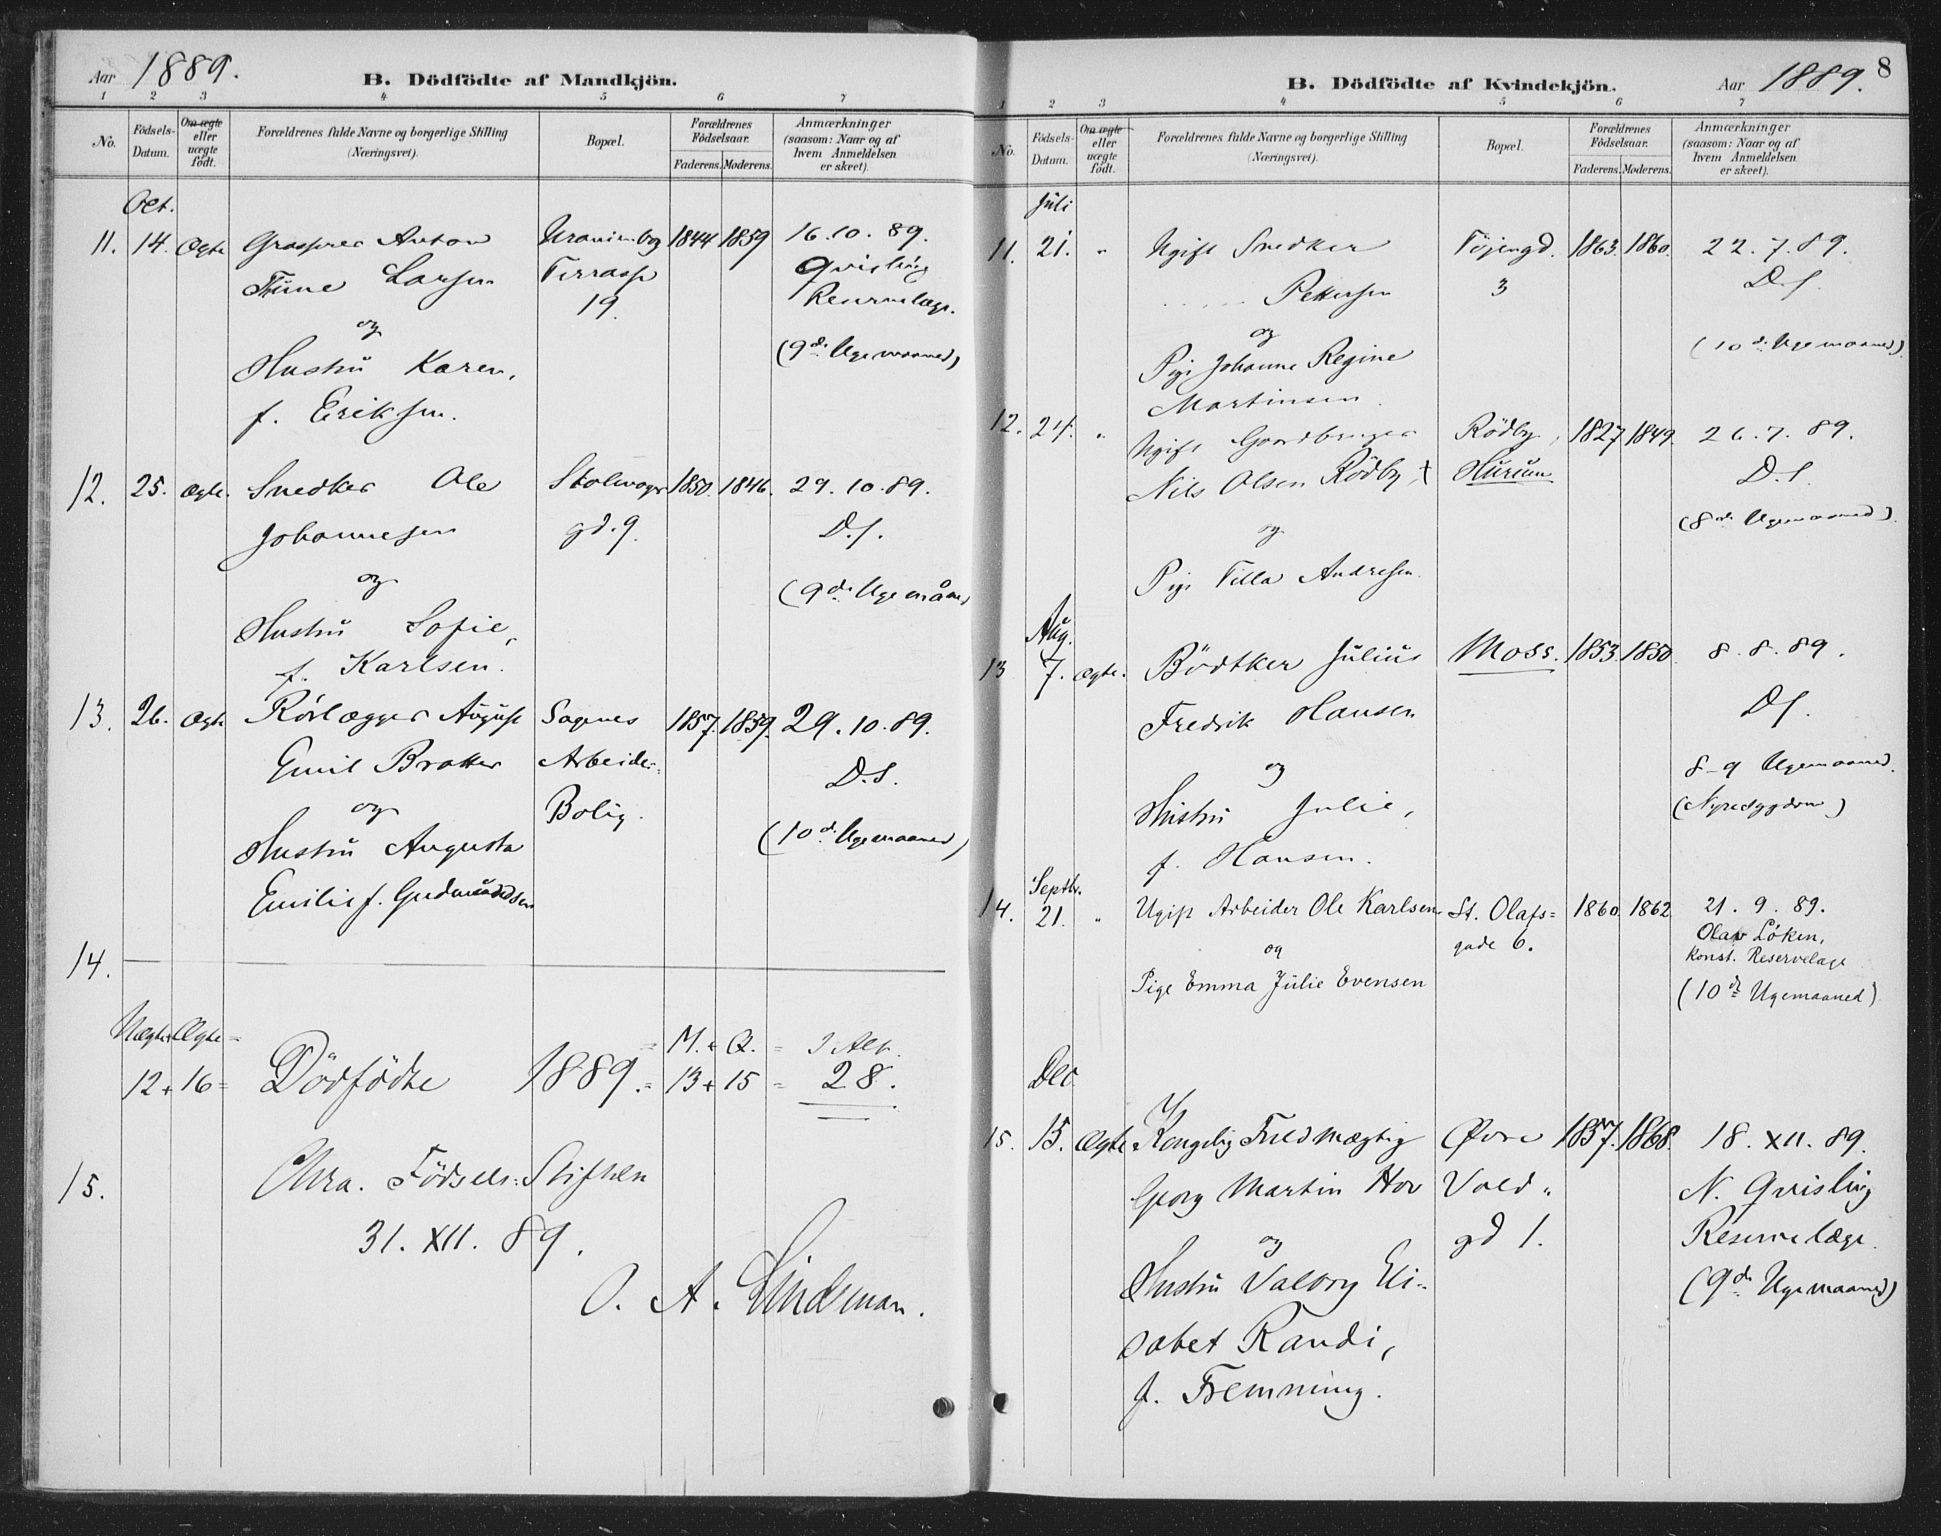 Aar 1889.
B. Dödfödte af Mandkjön.
1 2 3 4 5 6 7
No.
Födsels-Datum.
Om ægte eller uægte födt.
Forældrenes fulde Navne og borgerlige Stilling (Næringsvei).
Bopæl.
Forældrenes Födselsaar.
Faderens. Moderens.
Anmærkninger (saasom: Naar og af hvem Anmeldelsen er skeet).
Oct.
11. 14. Ægte Anton Uranienbog 1844 1859 16.10.89.
Tine Larsen Terrasse Qvisling
og 19. Reservelæge.
Hustru Karen, (9de Ugemaaned)
f. Eriksen.
12. 25. ægte. Snedker Ole 1850. 1846. 29.10.89.
Johannesen gd. 9. D.S.
og (9de Ugemåned
Hustru Sofie,
f. Karlsen.
13. 26. Ægte Rörlægger August Sagenes 1857. 1859. 29.10.89.
Emil Bratter Arbeider- D.S.
og Bolig.
Hustru Augusta (10de Ugemaaned)
Emilie f. Gudmundsen
14.
Uægte Ægte = = M. + Q. = I Alt.
12 + 16 = Dödfödte 1889. = 13 + 15 = 28.
15. Chra. Födsels-Stiftelse
31. XII. 89.
O. A. Lindeman.
8
B. Dödfödte af Kvindekjön.
Aar 1889.
1 2 3 4 5 6 7
No.
Födsels-Datum.
Om ægte eller uægte födt.
Forældrenes fulde Navne og borgerlige Stilling (Næringsvei).
Bopæl.
Forældrenes Födselsaar.
Faderens. Moderens.
Anmærkninger (saasom: Naar og af hvem Anmeldelsen er skeet).
Juli
11. 21. " Ugift Snedker Töiengd. 1863. 1860. 22.7.89.
Pettersen 3 D.S.
og (10de Ugemaaned)
Pige Johanne Regine
Martinsen.
12. 24. " Ugift Gaardbruger Rödby, 1827 1849. 26.7.89.
Nils Olsen Rödby, Hurum D.S.
og (8de Ugemaaned).
Pige Tilla Andresen.
Aug.
13 7. ægte. Bödtker Julius Moss. 1853. 1850. 8.8.89.
Fredrik Hansen DS.
og 8-9 Ugemaaned.
Hustru Julie, (Nyresygdom)
f. Hansen.
Septbr.
14. 21. " Ugift Arbeider Ole Karlsen St. Olafs= 1860. 1862 21.9.89.
og gade 6. Olav Löken,
Pige Emma Julie Evensen Konst. Reservelæge
(10de Ugemaaned)
Dec
15. 15. Ægte Kongelig Fuldmægtig Øvre 1857. 1868. 18.XII.89.
Georg Martin Hov Vold- N. Qvisling
og gd 1. Reservelæge.
Hustru Valborg Eli- (9de Ugemaaned)
sabet Randi,
f. Fremming.